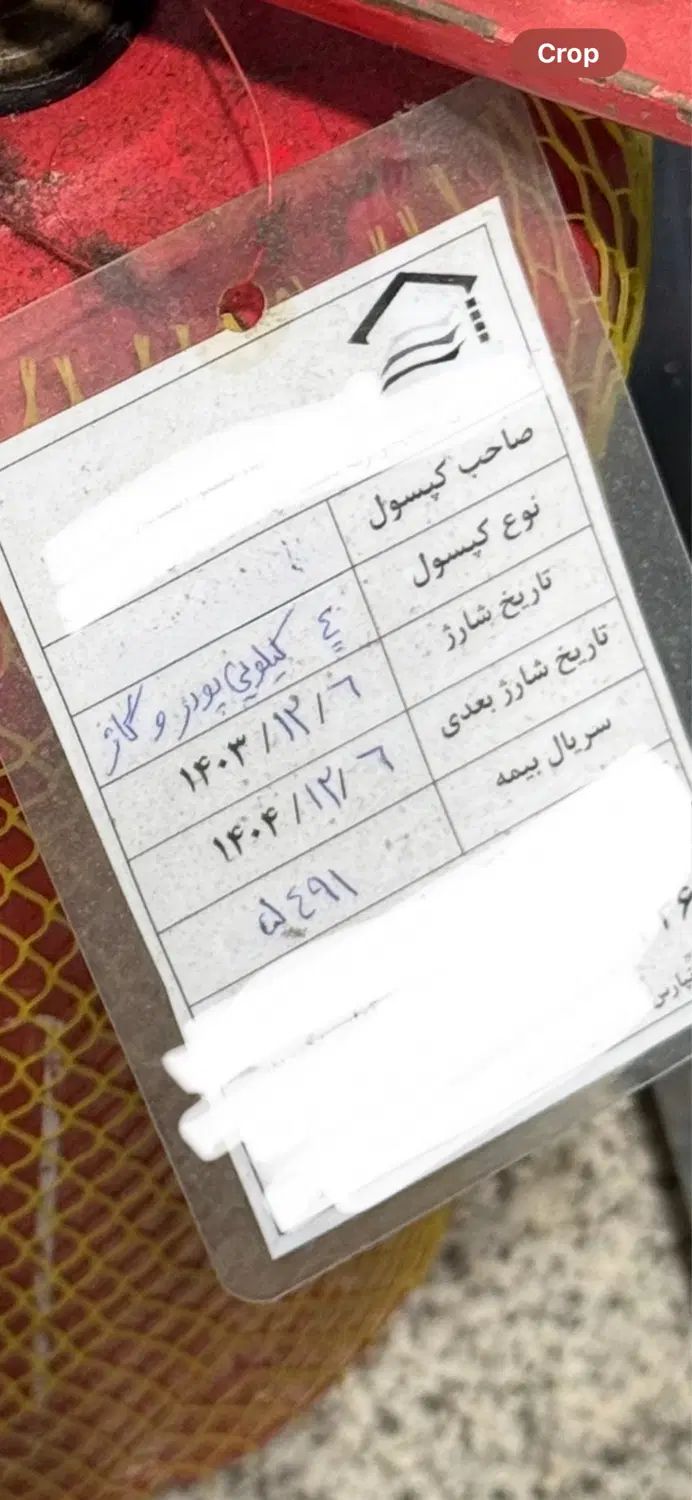 Crop
صاحب کپسول
نوع کپسول ٤ کیلویی پودر و گاز
تاریخ شارژ ۱۴۰۳/۱۲/٦
تاریخ شارژ بعدی ۱۴۰۴/۱۲/٦
سریال بیمه ۵٤۹۱